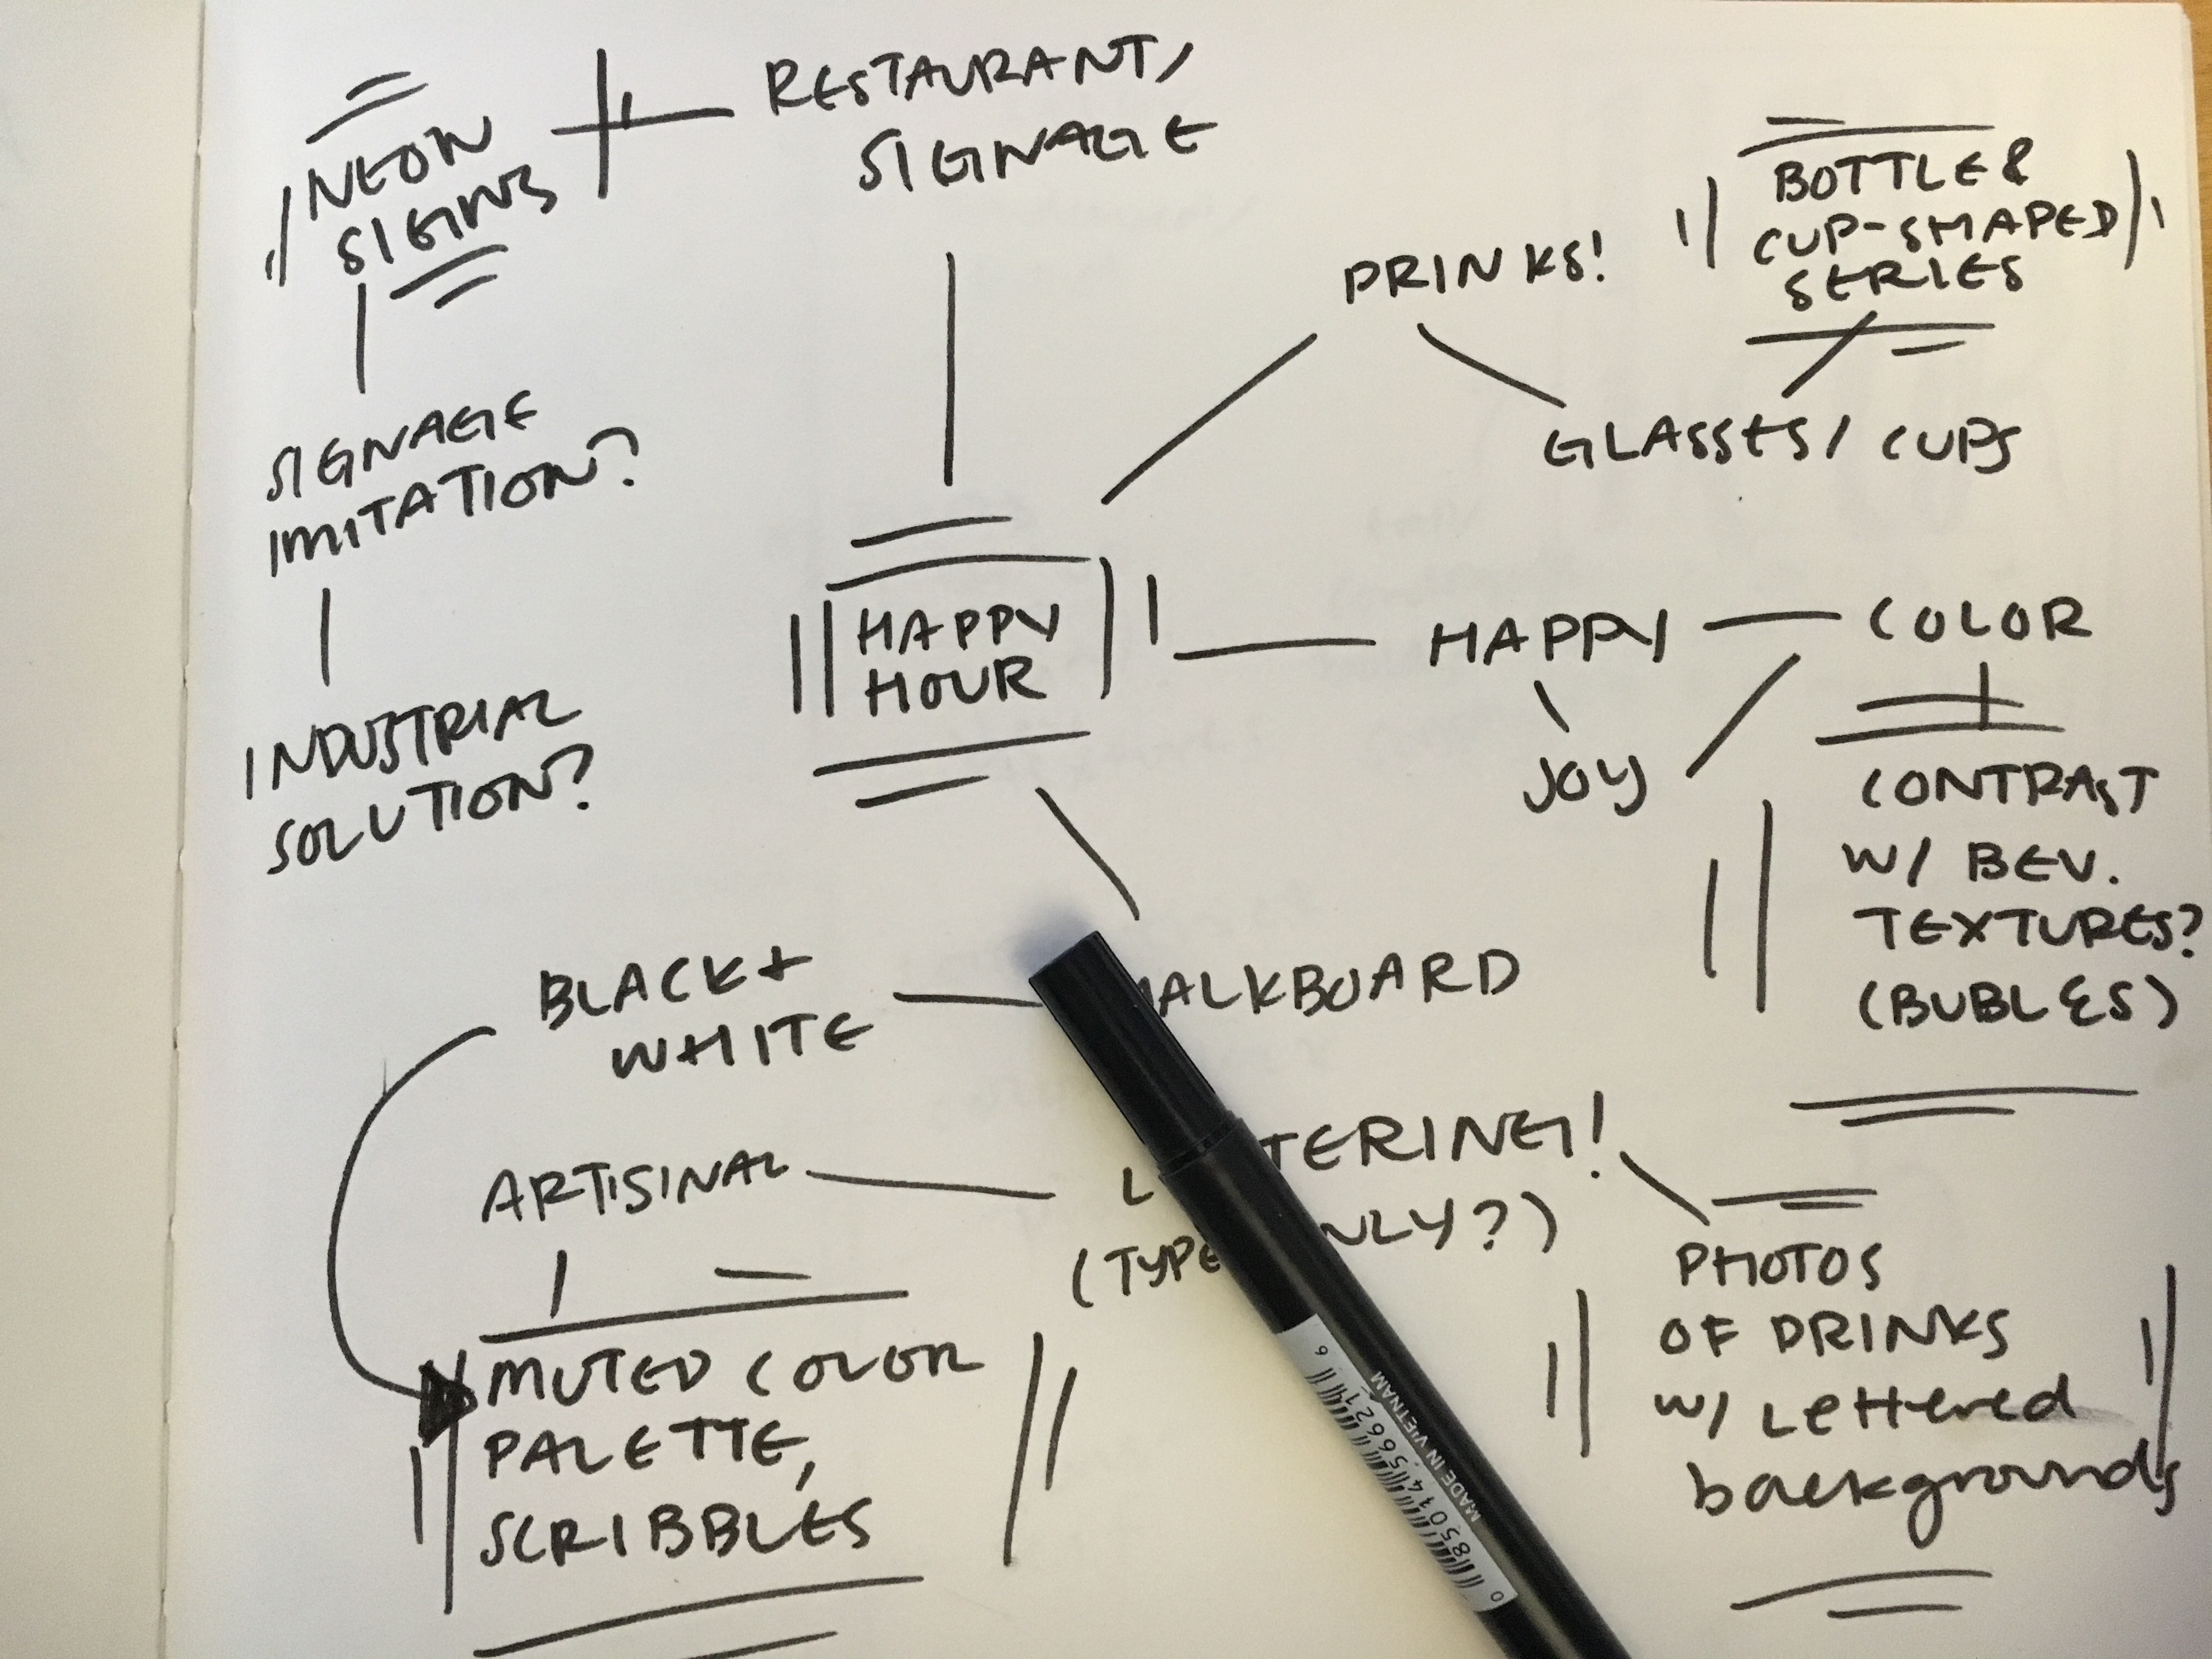 NEON
SIGNS
RESTAURANT/
SIGNAGE
SIGNAGE
IMITATION?
INDUSTRIAL
SOLUTION?
DRINKS!
BOTTLE &
CUP-SHAPED
SERIES
GLASSES/CUPS
HAPPY
HOUR
HAPPY
COLOR
JOY
CONTRAST
W/ BEV.
TEXTURES?
(BUBLES)
BLACK +
WHITE
ALKBOARD
ARTISINAL
L TERING!
(TYPE NLY?)
MUTED COLOR
PALETTE,
SCRIBBLES
PHOTOS
OF DRINKS
W/ Lettered
backgrounds
MADE IN VIETNAM